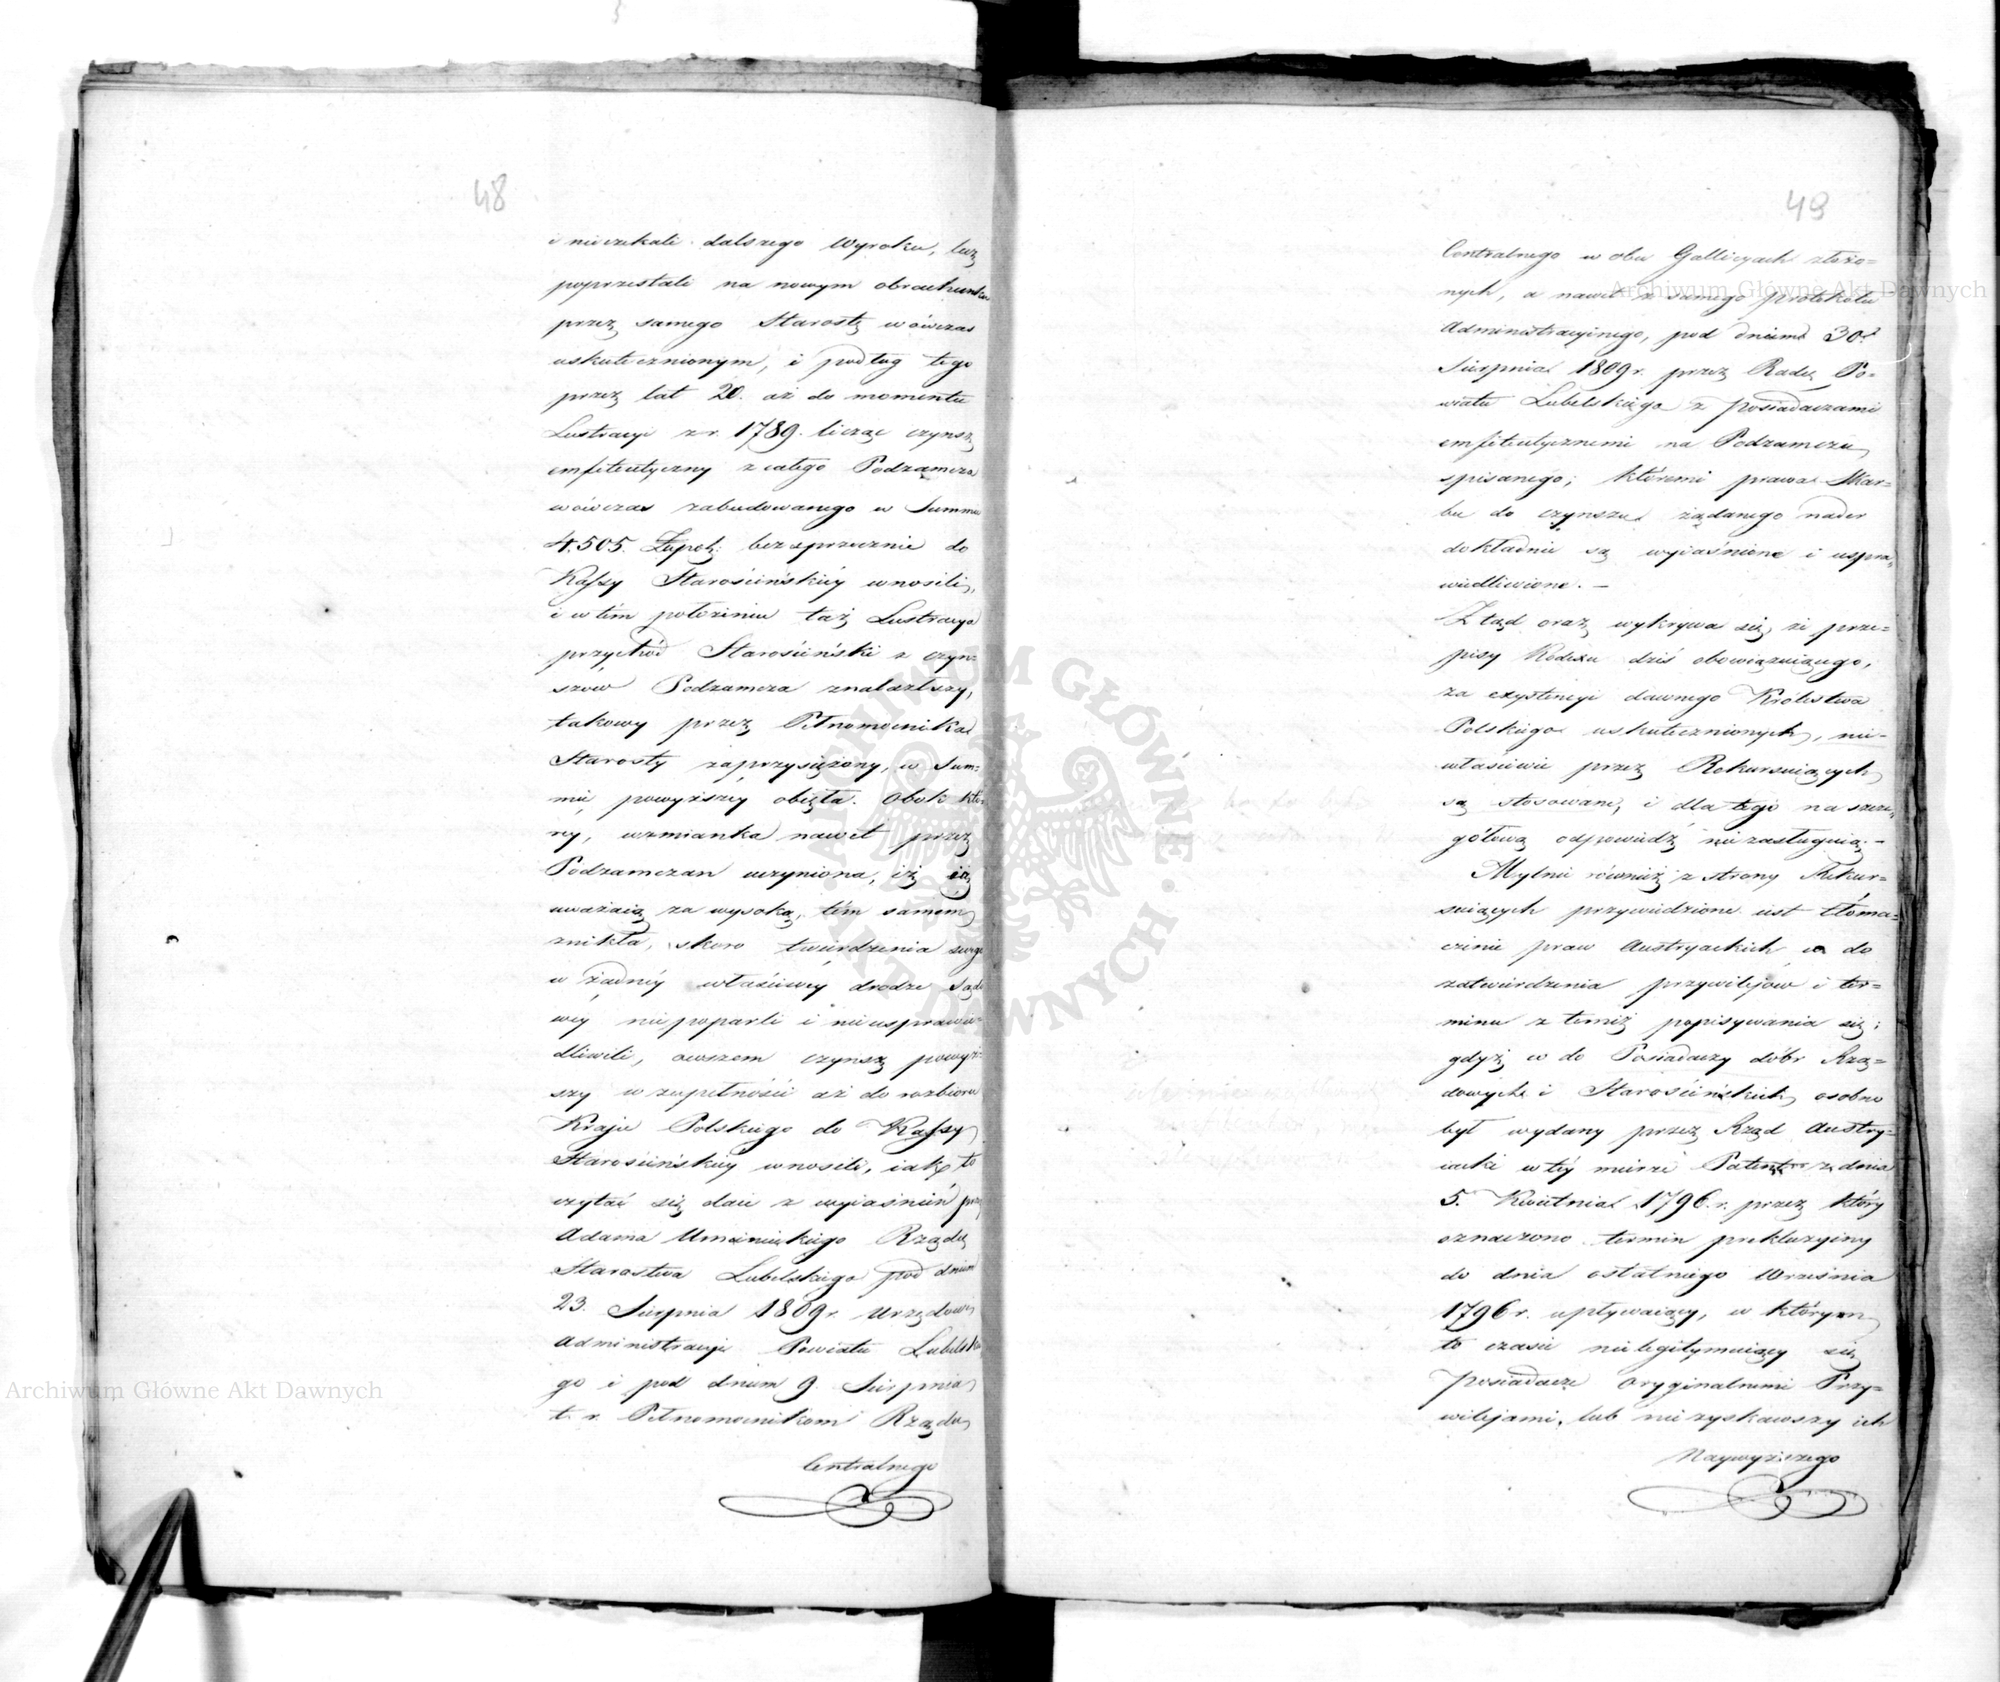 48
i nieczekali dalszego Wyroku, lecz
poprzestali na nowym obrachunku
przez samego Starostę wówczas
uskutecznionym, i podług tego
przez lat 20. aż do momentu
Lustracyi z r. 1789. licząc czynsz
emfiteutyczny z całego Podzamcza
wówczas zabudowanego w Summie
4.505. Złpol: bezsprzecznie do
Kassy Starościńskiéy wnosili,
i w tém położeniu taż Lustracya
przychód Starościński z czyn=
szów Podzamcza znalazłszy,
takowy przez Pełnomocnika
Starosty zaprzysiężony, w Sum=
mie powyższéy obięła. Obok któ
réy, wzmianka nawet przez
Podzamczan uczyniona, iż ią
uważaią za wysoką, tém samem
znikła, skoro twierdzenia swego
w żadnéy właściwéy drodze Sądo
wéy niepoparli i nieusprawie=
dliwili, owszem czynsz powyż=
szy w zupełności aż do rozbioru
Kraju Polskiego do Kassy
Starościńskiéy wnosili, iak to
czytać się daie z wyiaśnień przez
Adama Uminskiego Rządcę
Starostwa Lubelskiego pod dniem
23. Sierpnia 1809 r. Urzędowi
Administracyi Powiatu Lubelskie
go i pod dniem 9. Sierpnia
t. r. Pełnomocnikom Rządu
Centralnego
49
Centralnego w obu Galliciach złożo=
nych, a nawet z samego protokołu
Administracyinego, pod dniem 30.
Sierpnia 1809 r. przez Radę Po=
wiatu Lubelskiego z Posiadaczami
emfiteutycznemi na Podzamczu
spisanego; któremi prawa Skar=
bu do czynszu żądanego nader
dokładnie są wyiaśnione i uspra
wiedliwione. —
Ztąd oraz wykrywa się, że prze=
pisy Kodexu dziś obowiązuiącego,
za exystencyi dawnego Królestwa
Polskiego uskutecznionych, nie=
właściwie przez Rekursuiących
są stosowane, i dla tego na szcze
gółową odpowiedź nie zasługuią. —
Mylnie również z strony Rekur=
suiących przywiedzione iest tłoma=
czenie praw Austryackich co do
zatwierdzenia przywilejów i ter=
minu z temiż popisywania się;
gdyż co do Posiadaczy dóbr Rzą=
dowych i Starościńskich osobno
był wydany przez Rząd Austry=
iacki w téy mierze Patent z dnia
5. Kwietnia 1796. r. przez który
oznaczono termin prekluzyiny
do dnia ostatniego Września
1796 r. upływaiący, w którym
to czasie nielegitymuiący się
Posiadacze oryginalnemi Przy=
wilejami, lub nie zyskawszy ich
Naywyższego
Archiwum Główne Akt Dawnych
Archiwum Główne Akt Dawnych
ARCHIWUM GŁÓWNE AKT DAWNYCH